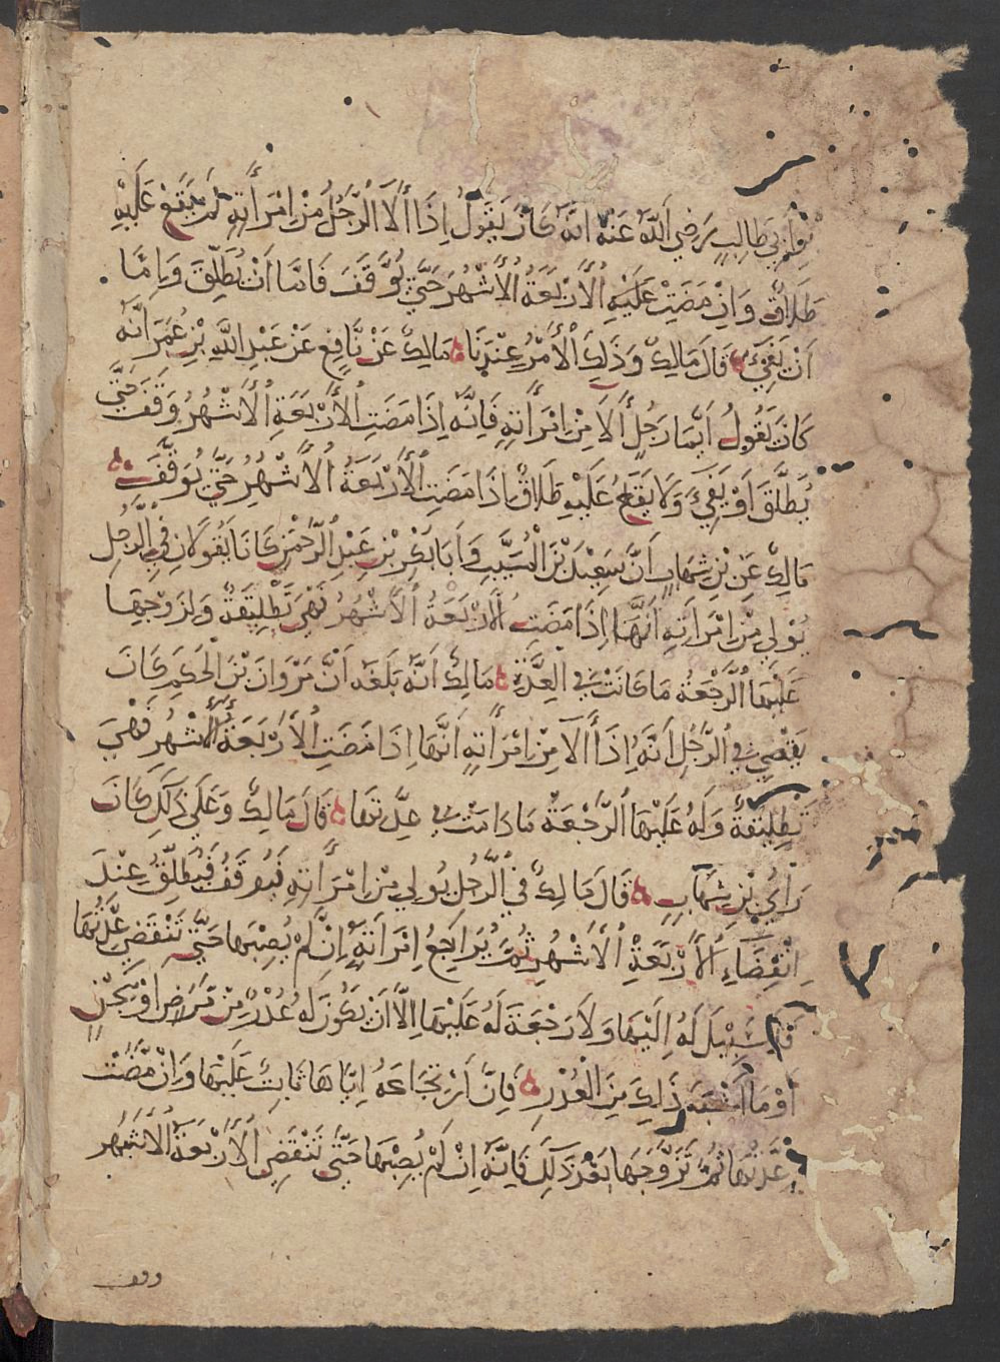 بْنِ أَبِي طَالِبٍ رَضِيَ اللَّهُ عَنْهُ أَنَّهُ كَانَ يَقُولُ إِذَا أَالَا الرَّجُلُ مِنْ اِمْرَأَتِهِ لَمْ يَقَعْ عَلَيْهِ
طَلَاقٌ وَإِنْ مَضَتْ عَلَيْهِ الْأَرْبَعَةُ الْأَشْهُرِ حَتَّى يُوقَفَ فَإِمَّا أَنْ يُطَلِّقَ وَإِمَّا
أَنْ يَفِيءَ قَالَ مَالِكٌ وَذَلِكَ الْأَمْرُ عِنْدَنَا مَالِكٌ عَنْ نَافِعٍ عَنْ عَبْدِ اللَّهِ بْنِ عُمَرَ أَنَّهُ
كَانَ يَقُولُ أَيُّمَا رَجُلٍ أَالَا مِنْ اِمْرَأَتِهِ فَإِنَّهُ إِذَا مَضَتِ الْأَرْبَعَةِ الْأَشْهُرُ وَقَفَ حَتَّى
يُطَلِّقَ أَوْ يَفِيءَ وَلَا يَقَعُ عَلَيْهِ طَلَاقٌ إِذَا مَضَتِ الْأَرْبَعَةُ الْأَشْهُرِ حَتَّى يُوقَفَ
مَالِكٌ عَنِ بْنِ شِهَابٍ أَنَّ سَعِيْدَ بْنَ الْمُسَيَّبِ وَأَبَا بَكْرِ بْنِ عَبْدِ الرَّحْمَنِ كَانَا يَقُولَانِ فِي الرَّجُلِ
يُوْلِي مِنْ اِمْرَاتِهِ أَنَّهَا إِذَا مَضَتِ الْأَرْبَعَةُ الْأَشْهُرُ فَهْيَ تَطْلِيقَةٌ وَلِزَوْجِهَا
عَلَيْهَا الرَّجْعَةُ مَا كَانَتْ فِي الْعِدَّةِ مَالِكٌ أَنَّهُ بَلَغَهُ أَنَّ مَرْوَانَ بْنَ الْحَكَمِ كَانَ
يَقْضِي فِي الرَّجُلِ أَنَّهُ إِذَا أَالَا مِنْ اِمْرَأَتِهِ أَنَّهَا إِذَا مَضَتِ الْأَرْبَعَةُ الْأَشْهُرِ فَهْيَ
تَطْلِيْقَةٌ وَلَهُ عَلَيْهَا الرَّجْعَةُ مَا دَامَتْ فِي عِدَّتِهَا قَالَ مَالِكٌ وَعَلَى ذَلِكَ كَانَ
رَأْيُ بْنِ شِهَابٍ قَالَ مَالِكٌ فِي الرَّجُلِ يُولِي مِنْ اِمْرَأَتِهِ فَيُوقَفُ فَيُطَلِّقُ عِنْدَ
انْقِضَاءِ الْأَرْبَعَةِ الْأَشْهُرِ ثُمَّ يُرَاجِعُ اِمْرَأَتَهُ إِنْ لَمْ يُصِبْهَا حَتَّى تَنْقَضِيَ عِدَّتُهَا
فَلَا سَبِيْلَ لَهُ إِلَيْهَا وَلَا رَجْعَةَ لَهُ عَلَيْهَا إِلَّا أَنْ يَكُونَ لَهُ عُذْرٌ مِنْ مَرَضٍ أَوْ سِجْنٍ
أَوْ مَا أَشْبَهَ ذَلِكَ مِنَ الْعُذْرِ فَإِنَّ ارْتِجَاعَهُ إِيَّاهَا ثَابِتٌ عَلَيْهَا وَإِنْ مَضَتْ
عِدَّتُهَا ثُمَّ تَزَوَّجَهَا بَعْدَ ذَلِكَ فَإِنَّهُ إِنْ لَمْ يُصِبْهَا حَتَّى تَنْقَضِيَ الْأَرْبَعَةُ الْأَشْهُرِ
وقف